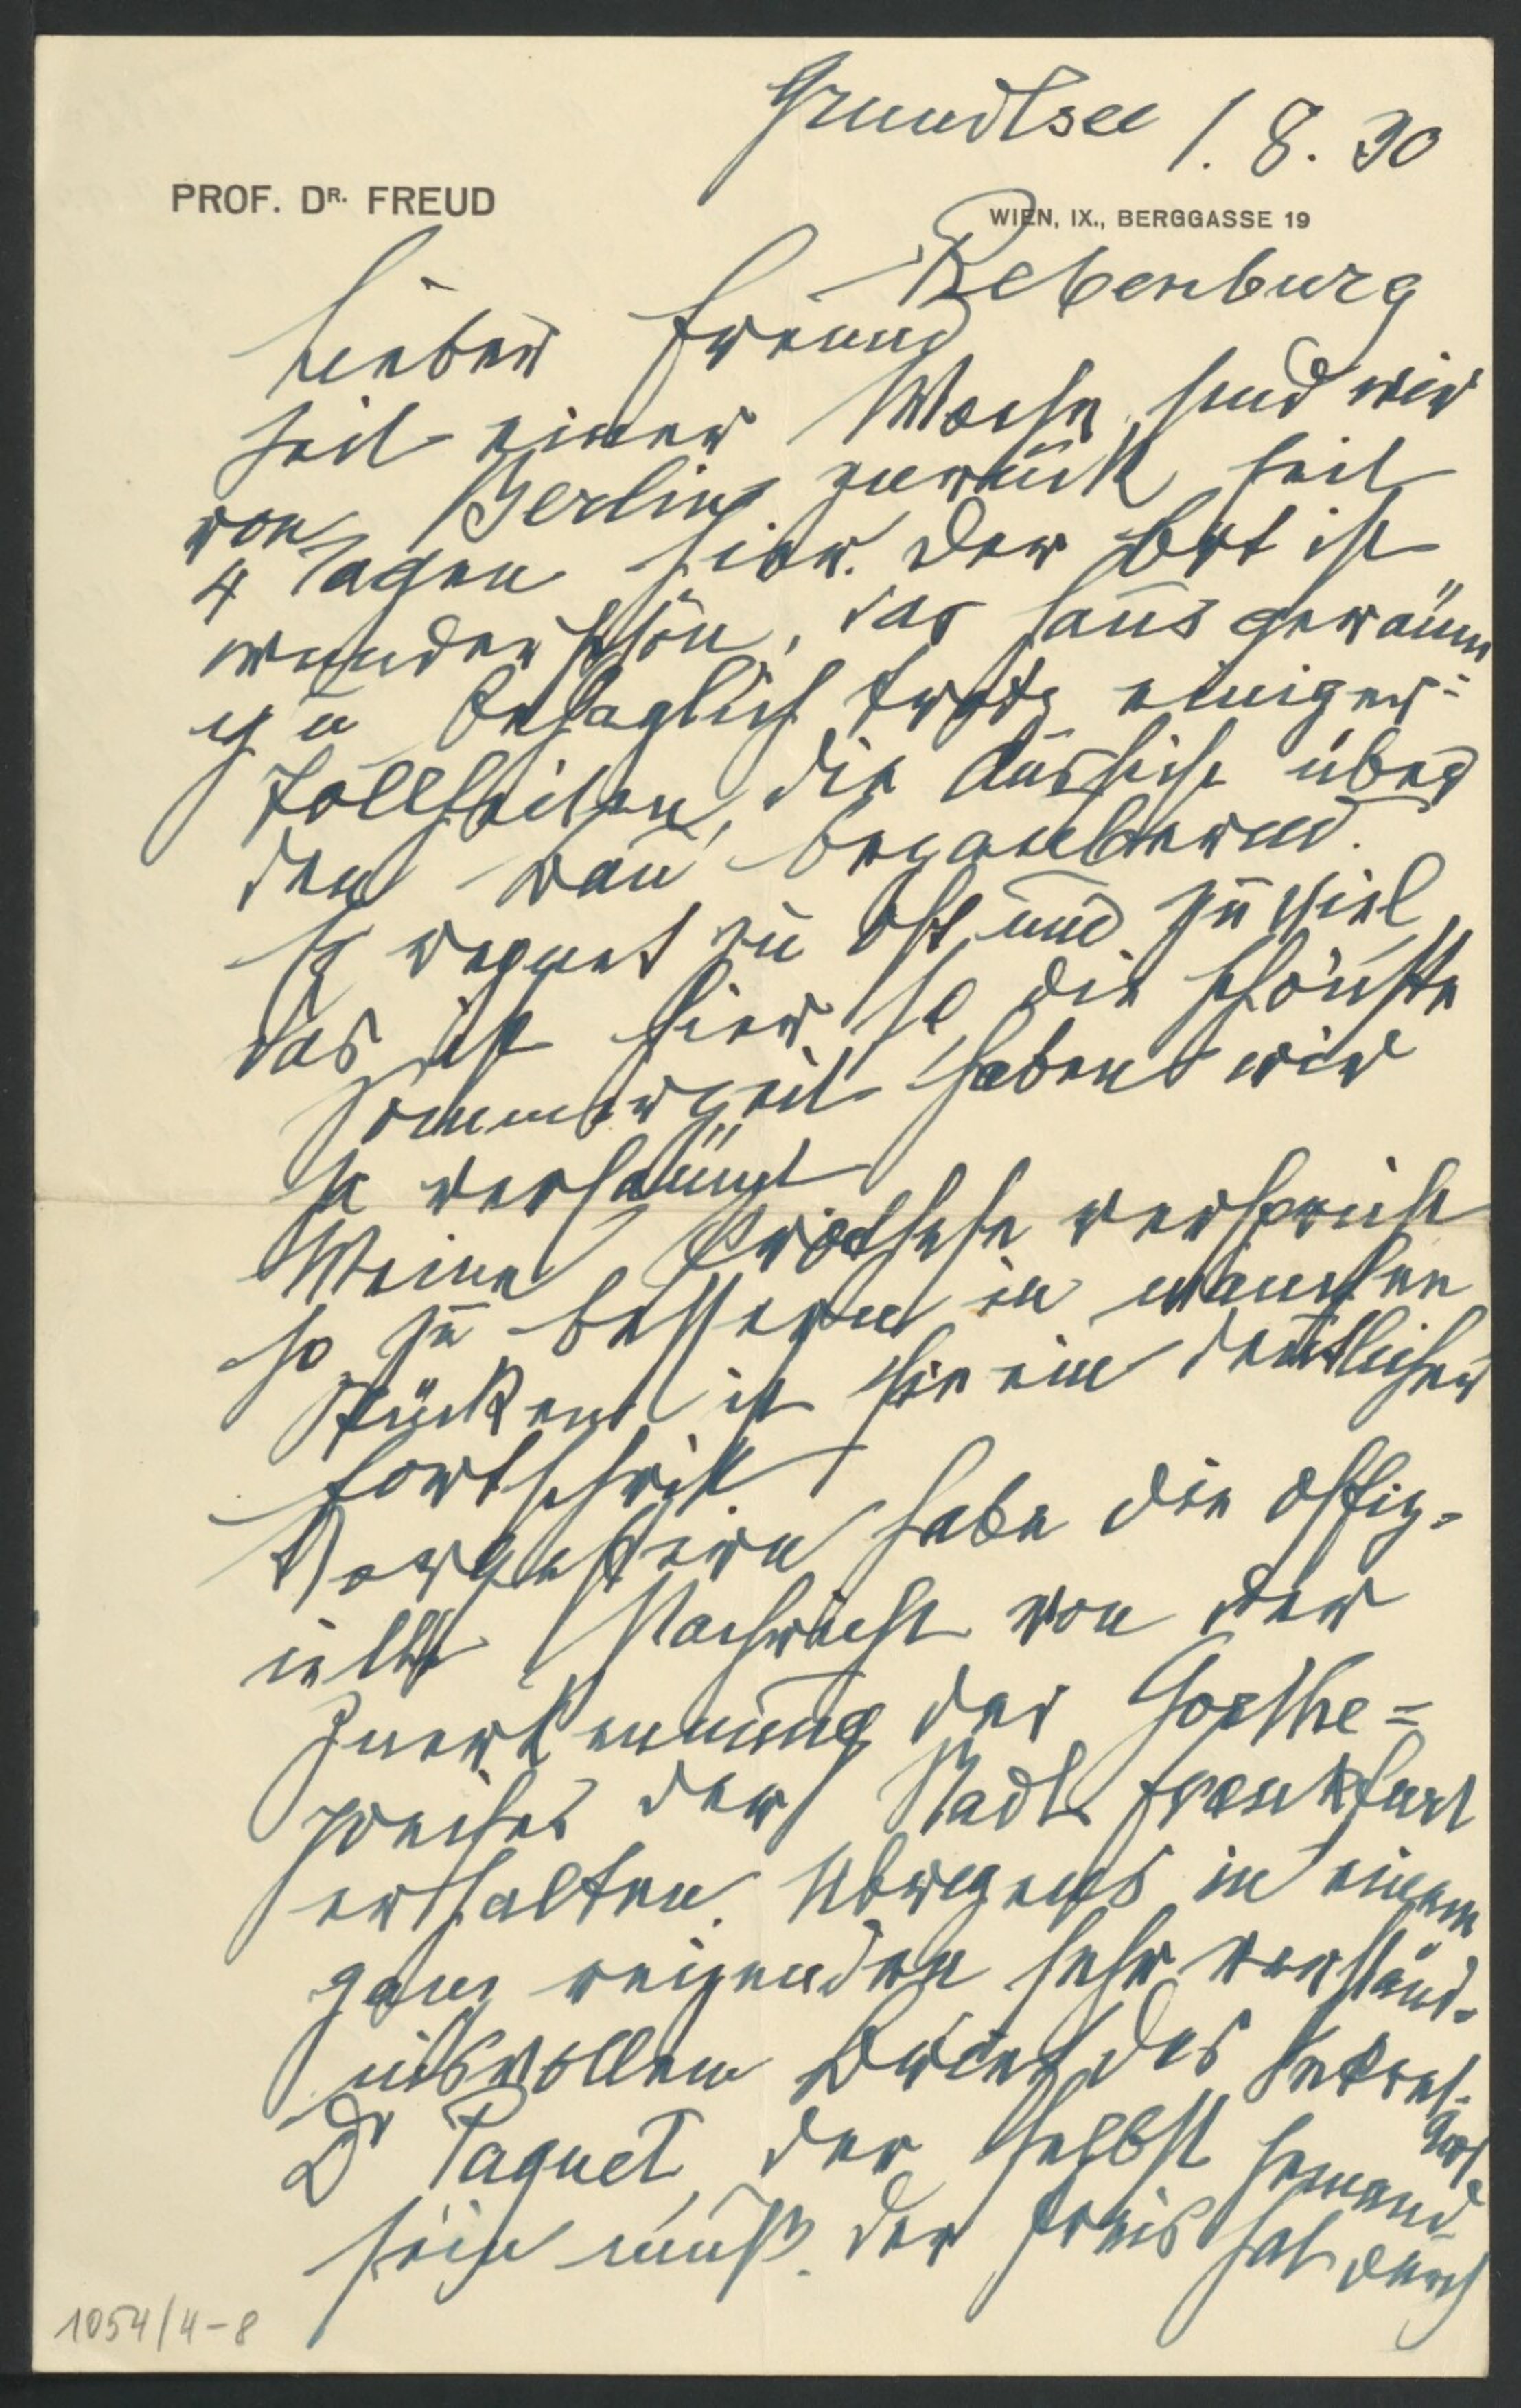 Grundlsee 1. 8. 30
PROF. DR. FREUD
WIEN, IX., BERGGASSE 19
Rebenburg
Lieber Freund
Seit einer Woche sind wir
von Berlin zurück, seit
4 Tagen hier. Der Ort ist
wunderschön, das Haus geräum
ig u behaglich trotz einiger
Tollheiten, die Aussicht über
den bezaubernd.
Es regnet zu oft und zu viel,
das ist hier so, die schönste
Sommerzeit haben wir
ja versäumt
Meine Prothese verspricht
so zu bessern in manchen
Stücken ist sie ein deutlicher
Fortschritt
Vorgestern habe die offiz-
ielle Nachricht von der
Zuerkennung des Goethe-
preises der Stadt Frankfurt
erhalten. Übrigens in einem
ganz reizenden sehr verständ-
nisvollen Brief des Sekret-
ärs
Dr Paquet, der selbst jemand
sein muß. Der Preis hat durch
1054/4-8